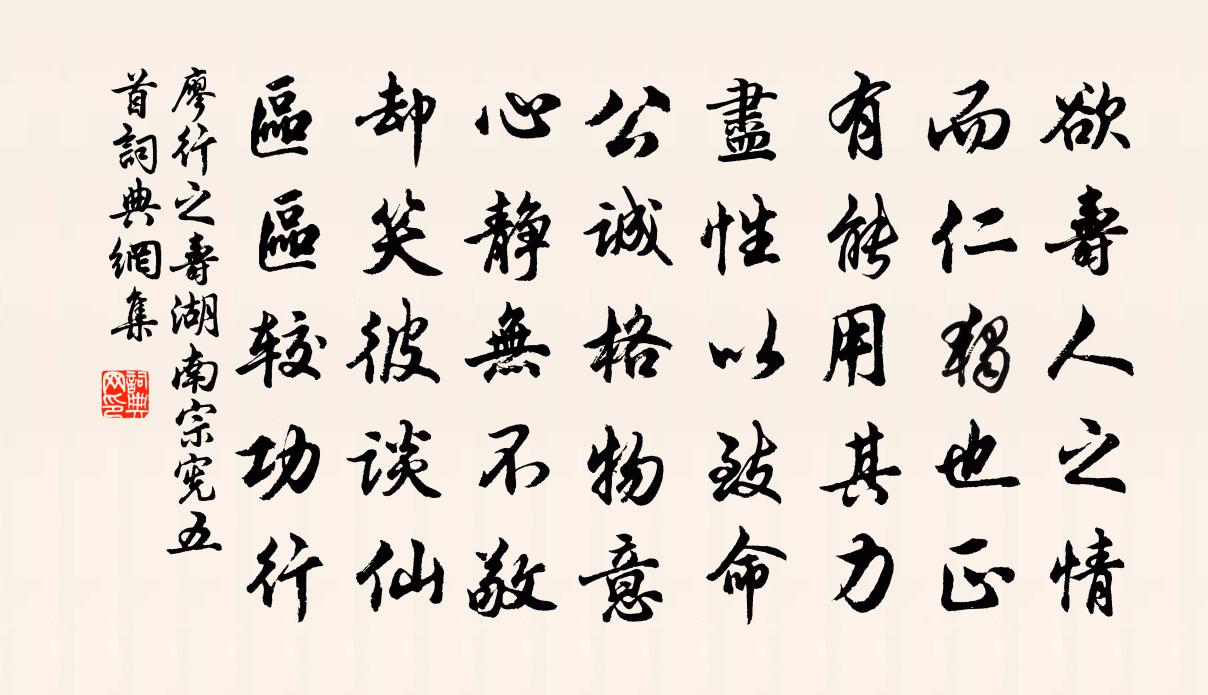 欲壽人之情
而仁獨也正
有能用其力
盡性以致命
公誠格物意
心靜無不敬
却笑彼談仙
區區較功行
廖行之壽湖南宗憲五
首詞典網集
詞典網印